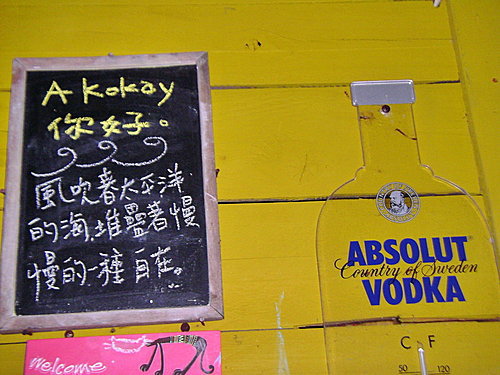 A kokay
你好。
風吹著太平洋
的海,堆疊著慢
慢的一種自在。
welcome
ABSOLUT
Country of Sweden
VODKA
C F
50 120